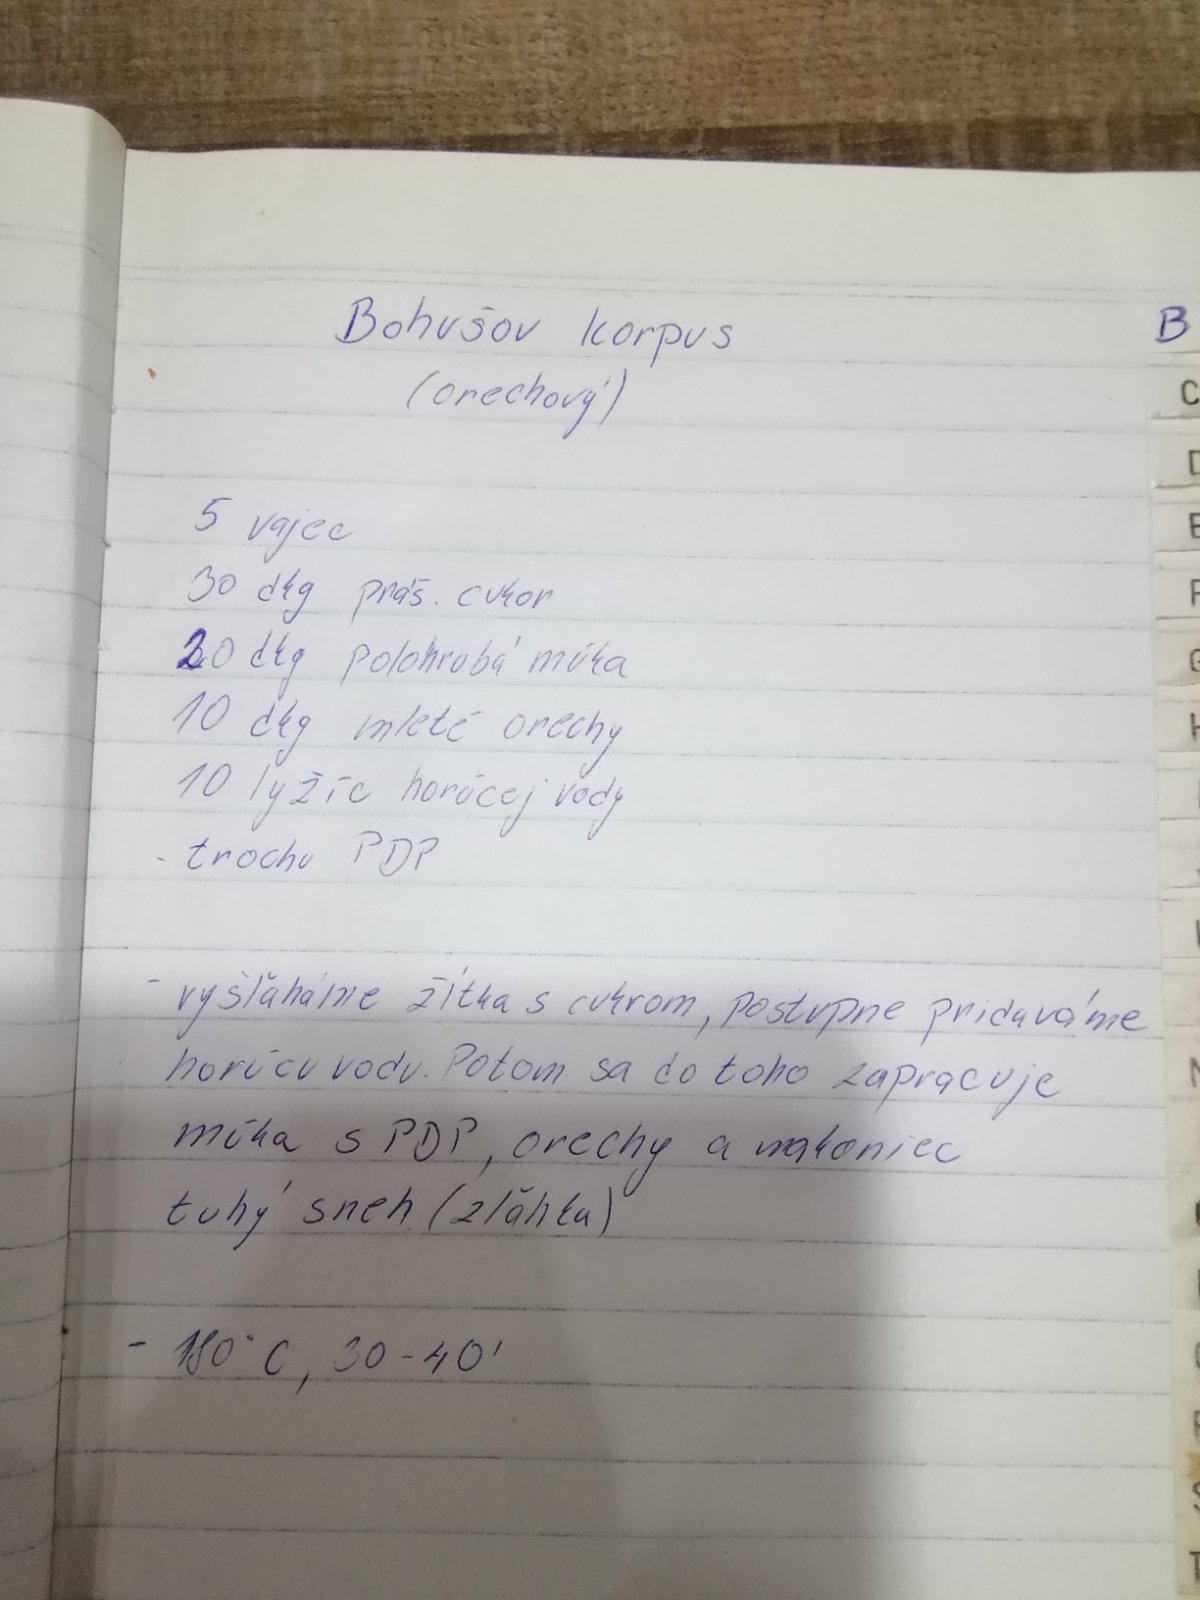 Bohušov korpus
(orechový)
5 vajec
30 dkg práš. cukor
20 dkg polohrubá múka
10 dkg mleté orechy
10 lyžíc horúcej vody
- trochu PDP
- vyšľaháme žĺtka s cukrom, postupne pridávame
horúcu vodu. Potom sa do toho zapracuje
múka s PDP, orechy a nakoniec
tuhý sneh (zľahka)
- 180°C, 30-40'
B
C
D
E
F
G
H